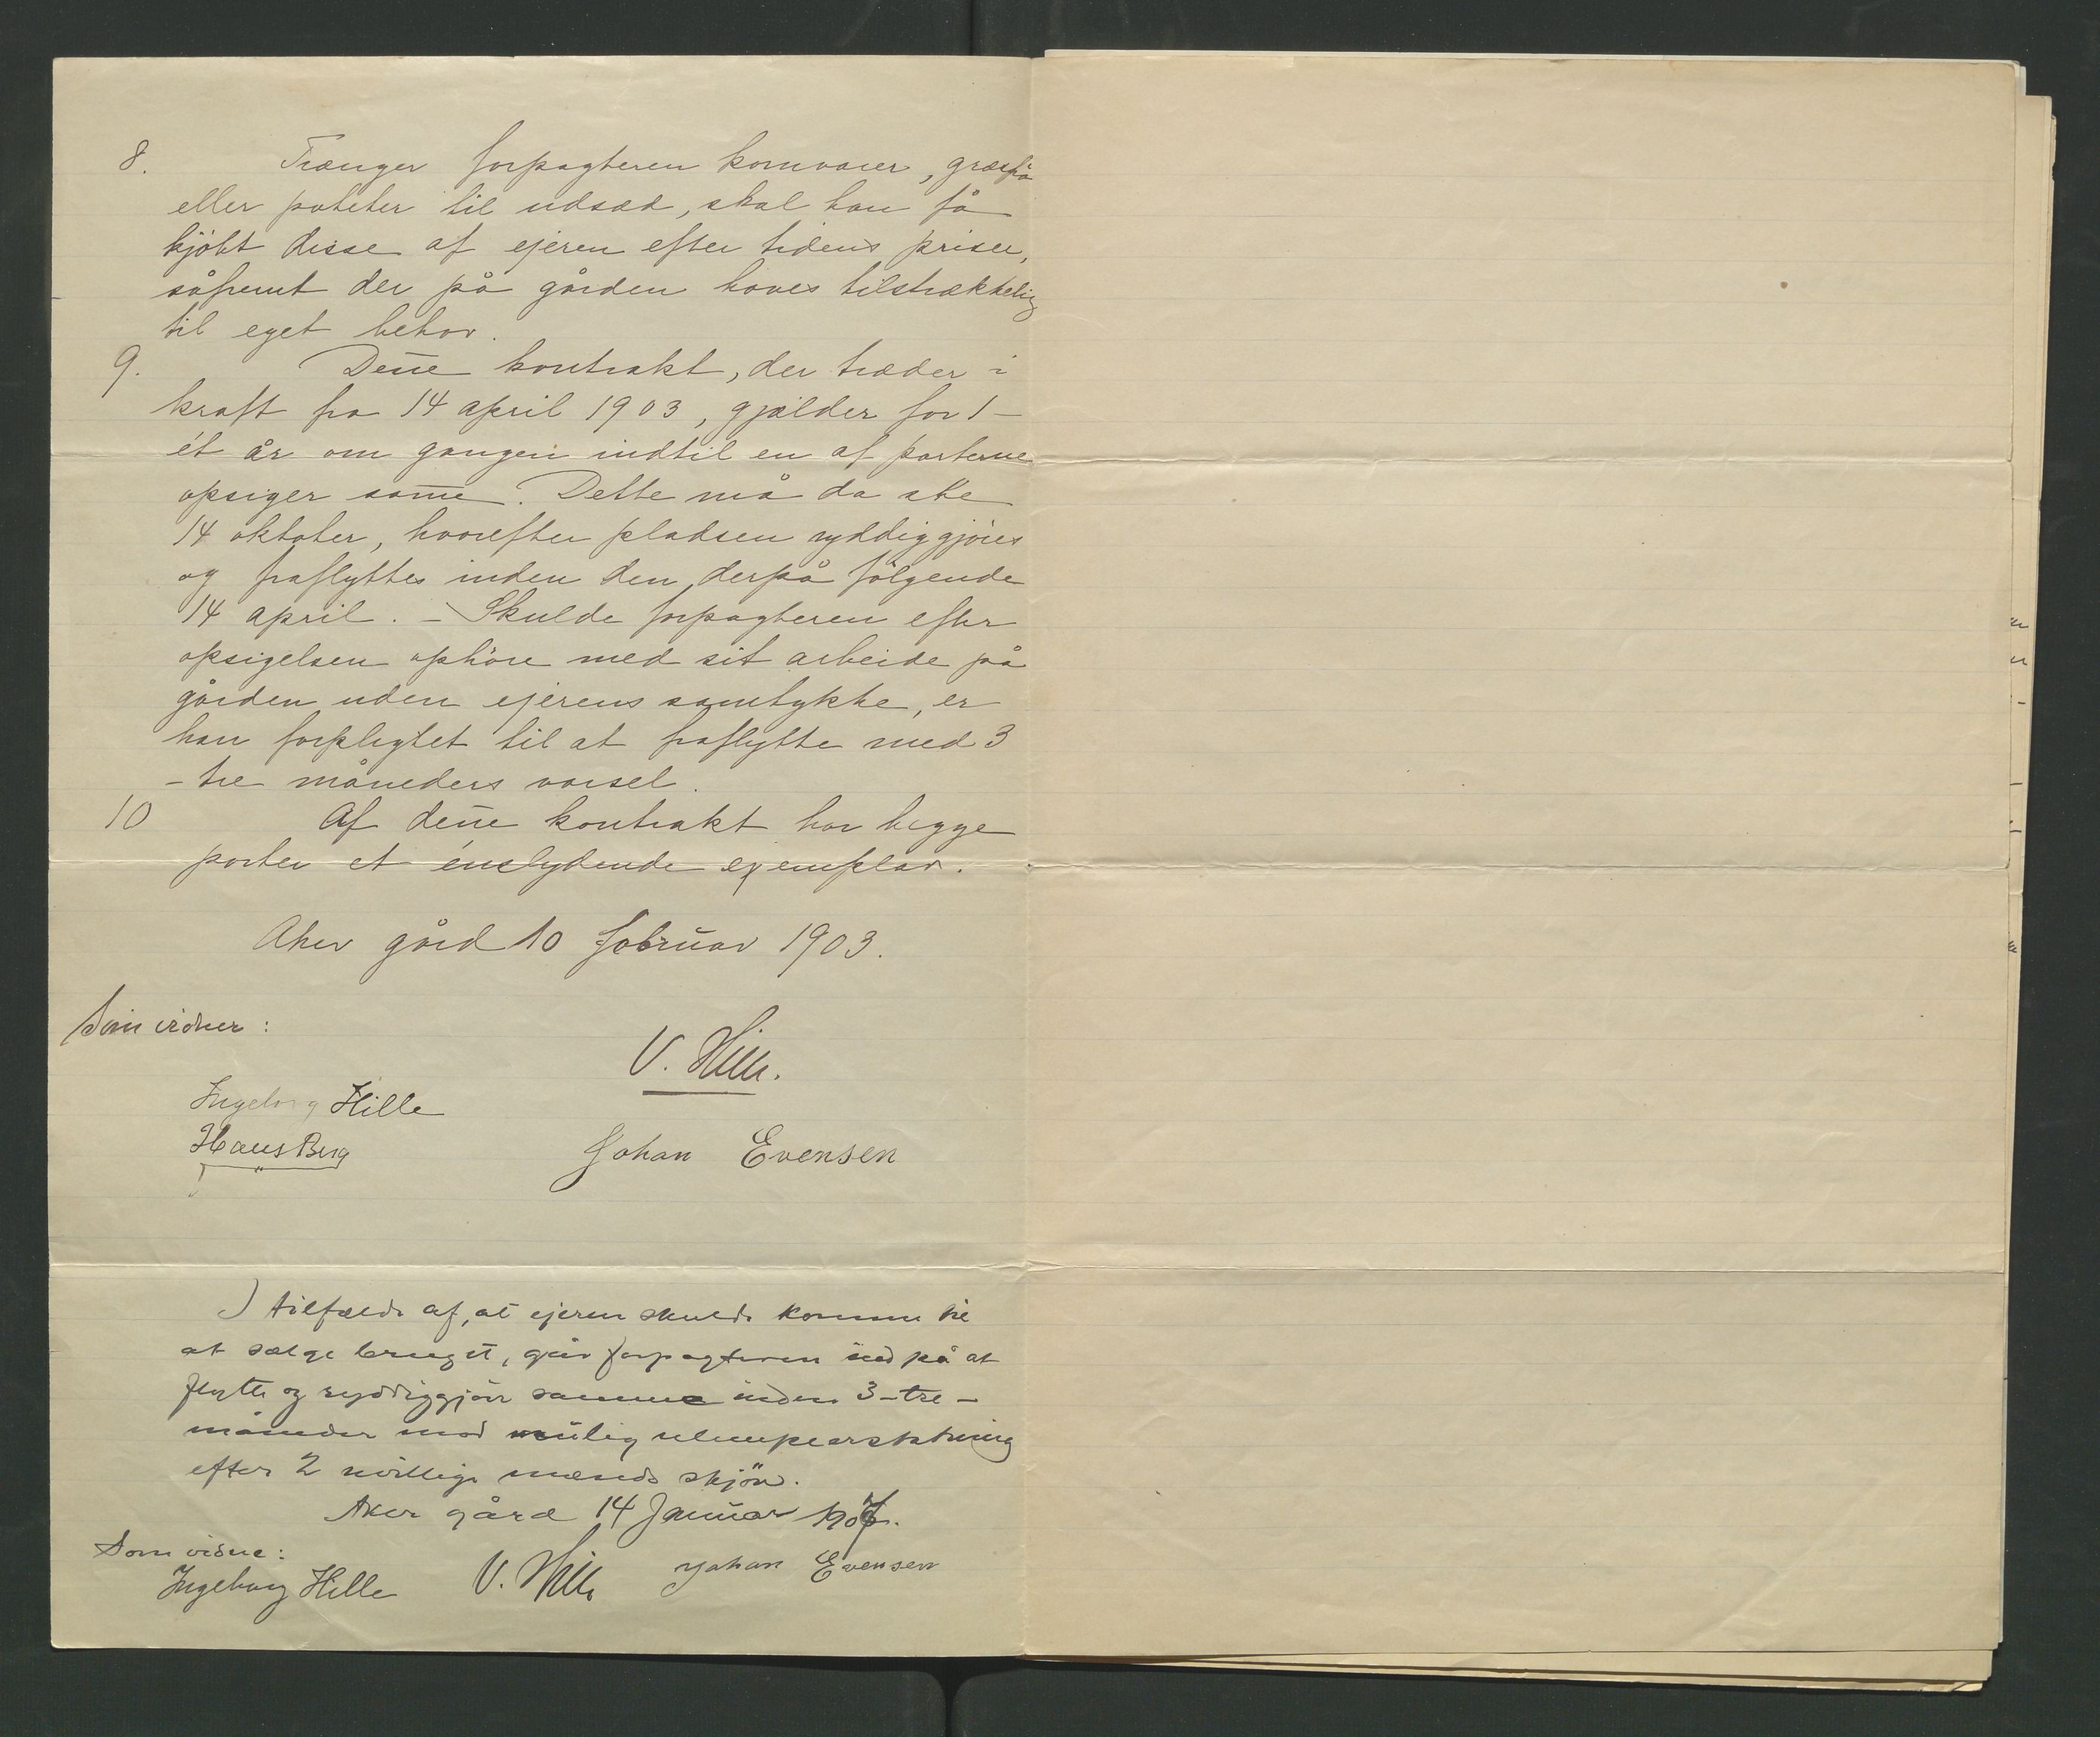 8. Trænger forpagteren kornvarer, græsfrø
eller poteter til udsæd, skal han få
kjöbt disse af ejeren efter tidens priser,
såfremt der på gården haves tilstrækkelig
til eget behov.
9. Den̄e kontrakt, der træder i
kraft fra 14 april 1903, gjælder for 1-
ét år om gangen indtil en af parterne
opsiger sam̄e. Dette må da ske
14 oktober, hvorefter pladsen ryddiggjöres
og fraflyttes inden den derpå fölgende
14 april. - Skulde forpagteren efter
opsigelsen ophöre med sit arbeide på
gården uden ejerens samtykke, er
han forpligtet til at fraflytte med 3
- tre måneders varsel.
10 Af den̄e kontrakt har begge
parter et énslydende exemplar.
Aker gård 10 februar 1903.
Som vidner:
V. Hille.
Ingeborg Hille
Hans Berg
Johan Evensen
I tilfælde af, at ejeren skulde komme til
at sælge bruget, går forpagteren ind på at
flytte og ryddiggjöre samme inden 3-tre-
måneder mod mulig ulempeerstatning
efter 2 uvillige mænds skjön.
Aker gård 14 Januar 1907.
Som vidne:
Ingeborg Hille V. Hille Johan Evensen